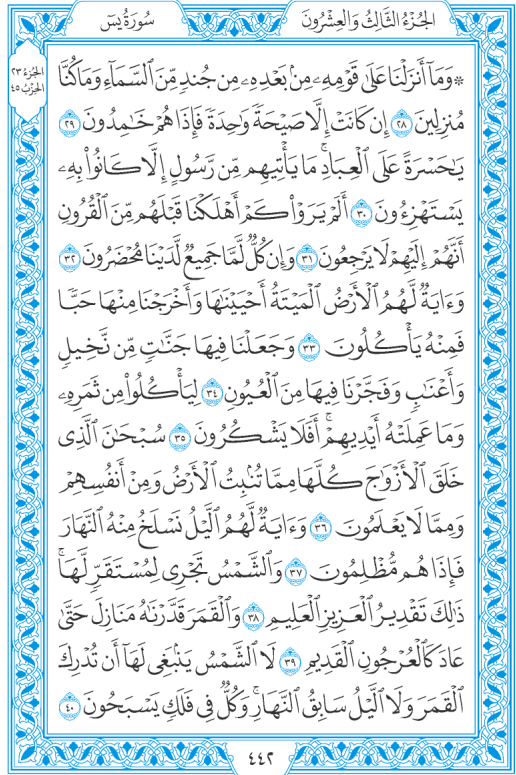 الجُزْءُ الثَّالِثُ وَالعِشْرُونَ
سُورَةُ يسٓ
الجُزْءُ ٢٣
الحِزْبُ ٤٥
۞ وَمَآ أَنزَلْنَا عَلَىٰ قَوْمِهِۦ مِنۢ بَعْدِهِۦ مِن جُندٍ مِّنَ ٱلسَّمَآءِ وَمَا كُنَّا
مُنزِلِينَ ٢٨ إِن كَانَتْ إِلَّا صَيْحَةً وَٰحِدَةً فَإِذَا هُمْ خَٰمِدُونَ ٢٩
يَٰحَسْرَةً عَلَى ٱلْعِبَادِ ۚ مَا يَأْتِيهِم مِّن رَّسُولٍ إِلَّا كَانُوا۟ بِهِۦ
يَسْتَهْزِءُونَ ٣٠ أَلَمْ يَرَوْا۟ كَمْ أَهْلَكْنَا قَبْلَهُم مِّنَ ٱلْقُرُونِ
أَنَّهُمْ إِلَيْهِمْ لَا يَرْجِعُونَ ٣١ وَإِن كُلٌّ لَّمَّا جَمِيعٌ لَّدَيْنَا مُحْضَرُونَ ٣٢
وَءَايَةٌ لَّهُمُ ٱلْأَرْضُ ٱلْمَيْتَةُ أَحْيَيْنَٰهَا وَأَخْرَجْنَا مِنْهَا حَبًّا
فَمِنْهُ يَأْكُلُونَ ٣٣ وَجَعَلْنَا فِيهَا جَنَّٰتٍ مِّن نَّخِيلٍ
وَأَعْنَٰبٍ وَفَجَّرْنَا فِيهَا مِنَ ٱلْعُيُونِ ٣٤ لِيَأْكُلُوا۟ مِن ثَمَرِهِۦ
وَمَا عَمِلَتْهُ أَيْدِيهِمْ ۖ أَفَلَا يَشْكُرُونَ ٣٥ سُبْحَٰنَ ٱلَّذِى
خَلَقَ ٱلْأَزْوَٰجَ كُلَّهَا مِمَّا تُنۢبِتُ ٱلْأَرْضُ وَمِنْ أَنفُسِهِمْ
وَمِمَّا لَا يَعْلَمُونَ ٣٦ وَءَايَةٌ لَّهُمُ ٱلَّيْلُ نَسْلَخُ مِنْهُ ٱلنَّهَارَ
فَإِذَا هُم مُّظْلِمُونَ ٣٧ وَٱلشَّمْسُ تَجْرِى لِمُسْتَقَرٍّ لَّهَا ۚ
ذَٰلِكَ تَقْدِيرُ ٱلْعَزِيزِ ٱلْعَلِيمِ ٣٨ وَٱلْقَمَرَ قَدَّرْنَٰهُ مَنَازِلَ حَتَّىٰ
عَادَ كَٱلْعُرْجُونِ ٱلْقَدِيمِ ٣٩ لَا ٱلشَّمْسُ يَنۢبَغِى لَهَآ أَن تُدْرِكَ
ٱلْقَمَرَ وَلَا ٱلَّيْلُ سَابِقُ ٱلنَّهَارِ ۚ وَكُلٌّ فِى فَلَكٍ يَسْبَحُونَ ٤٠
٤٤٢